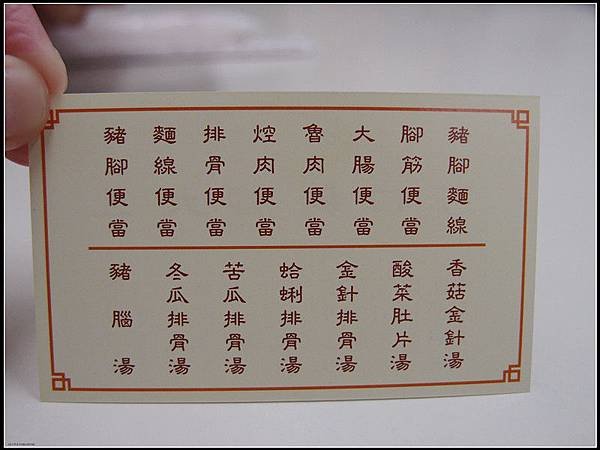 豬腳麵線
腳筋便當
大腸便當
魯肉便當
焢肉便當
排骨便當
麵線便當
豬腳便當
香菇金針湯
酸菜肚片湯
金針排骨湯
蛤蜊排骨湯
苦瓜排骨湯
冬瓜排骨湯
豬腦湯